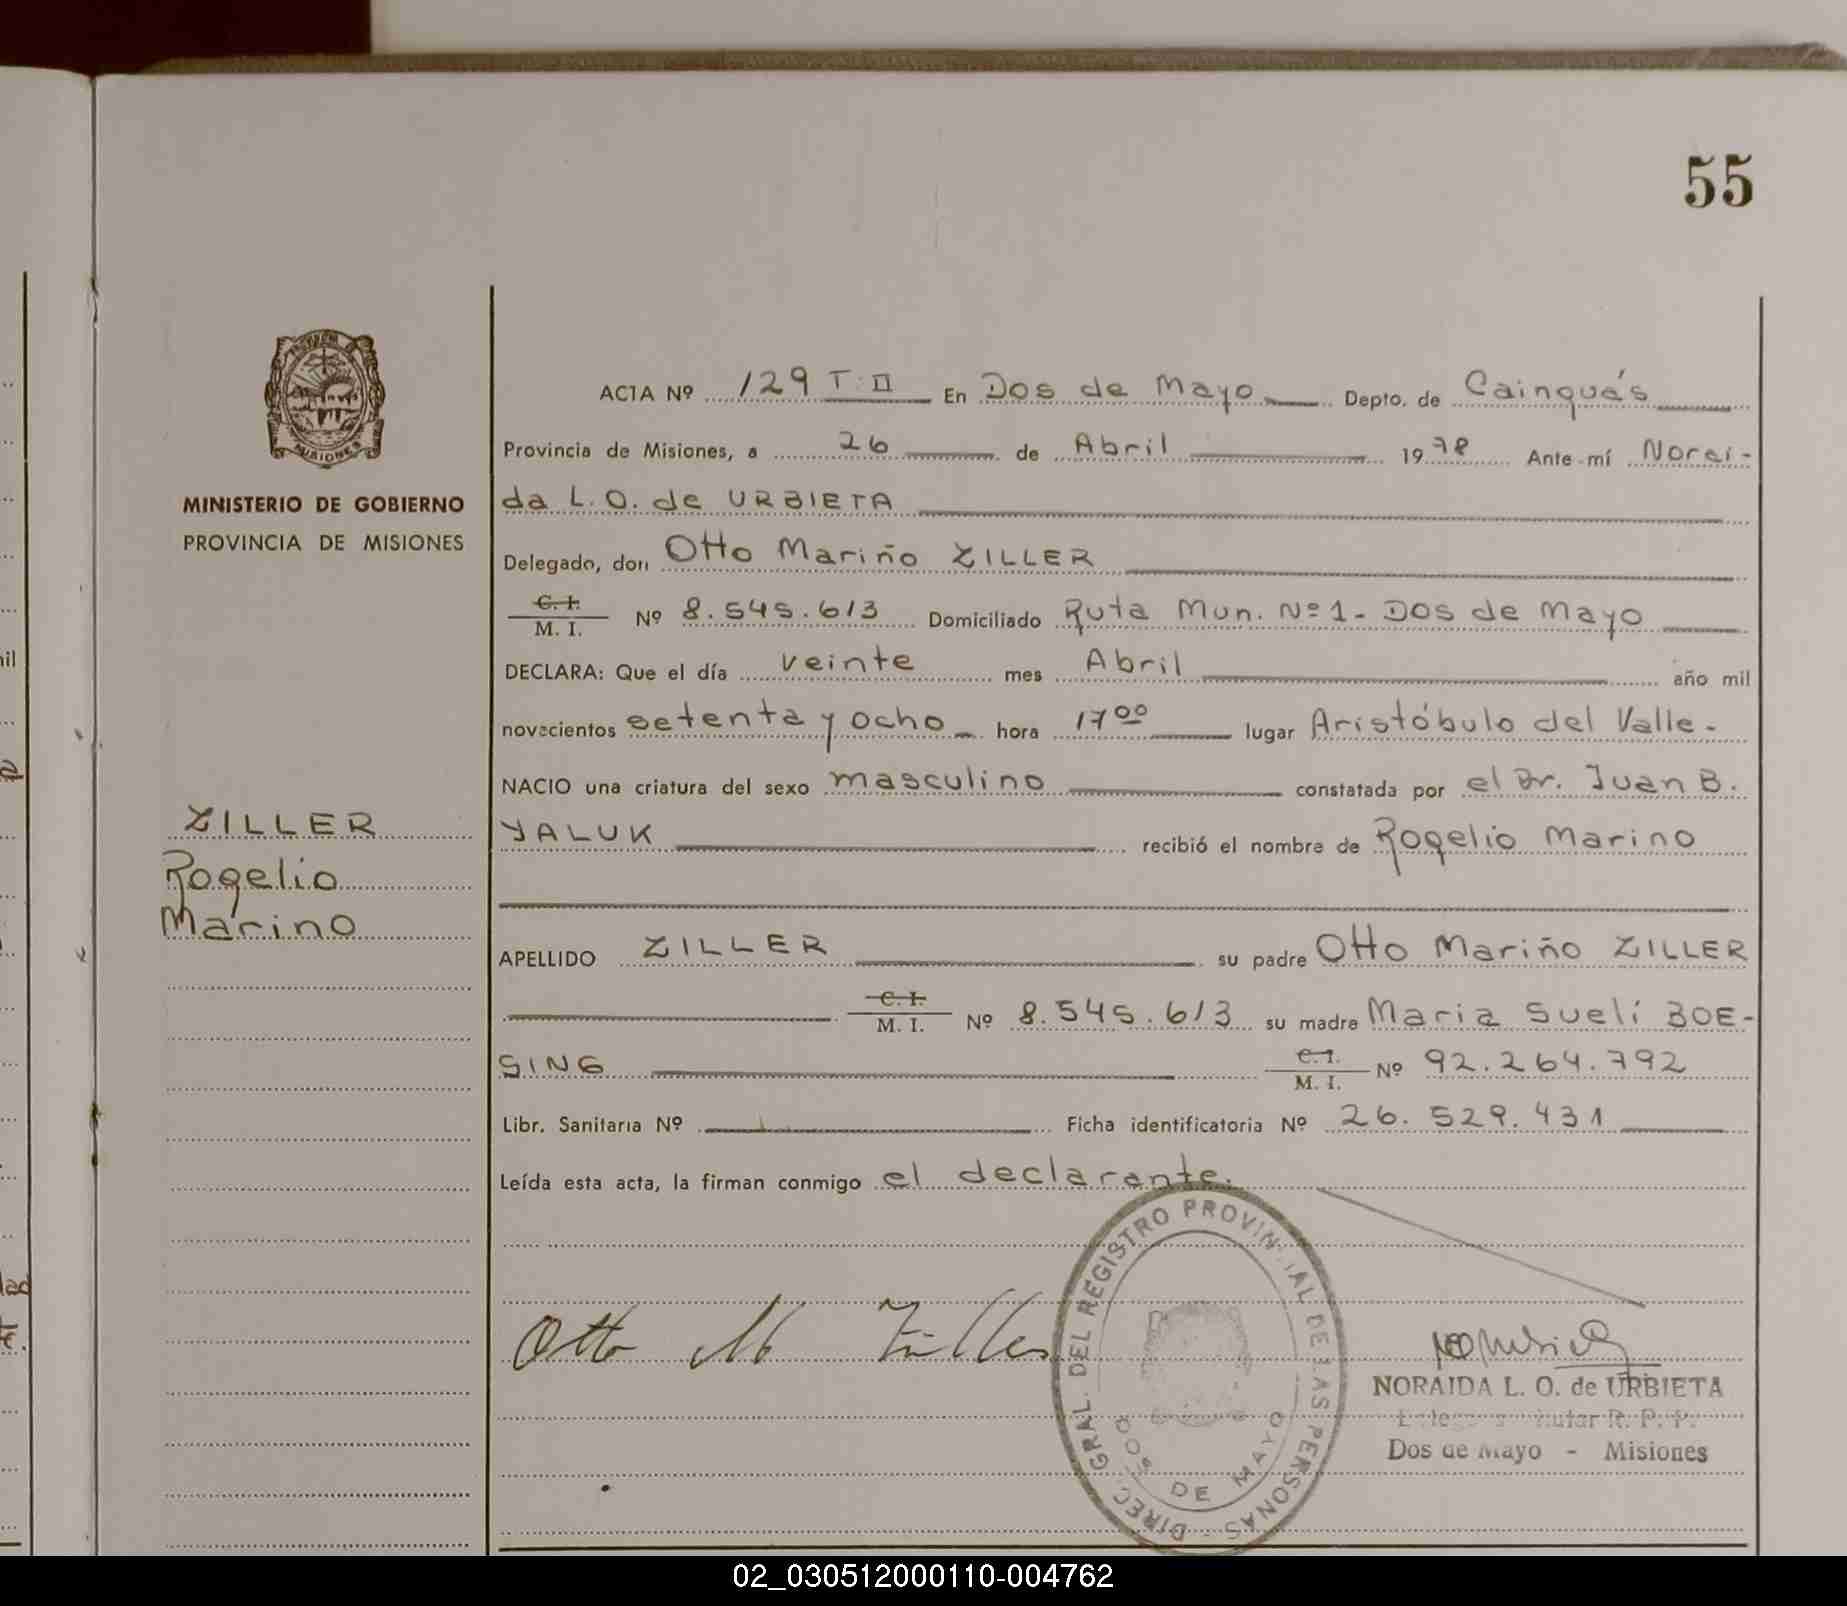 55
MISIONES
MINISTERIO DE GOBIERNO
PROVINCIA DE MISIONES
ZILLER
Rogelio
Marino
ACTA Nº 129 T: II En Dos de Mayo Depto. de Cainguás
Provincia de Misiones, a 26 de Abril 1978 Ante mí Norai-
da L. O. de URBIETA
Delegado, don Otto Mariño ZILLER
C. I.
M. I. Nº 8.545.613 Domiciliado Ruta Mun. Nº 1 - Dos de Mayo
DECLARA: Que el día veinte mes Abril año mil
novecientos setenta y ocho hora 17 00 lugar Aristóbulo del Valle -
NACIO una criatura del sexo masculino constatada por el Dr. Juan B.
YALUK recibió el nombre de Rogelio Marino
APELLIDO ZILLER su padre Otto Mariño ZILLER
C. I.
M. I. Nº 8.545.613 su madre Maria Suelí BOE-
SING C. I.
M. I. Nº 92.264.792
Libr. Sanitaria Nº Ficha identificatoria Nº 26.529.431
Leída esta acta, la firman conmigo el declarante.
Otto M Ziller
DIREC. GRAL. DEL REGISTRO PROVINCIAL DE LAS PERSONAS -
DOS DE MAYO
NORAIDA L. O. de URBIETA
R. P. P.
Dos de Mayo - Misiones
02_030512000110-004762